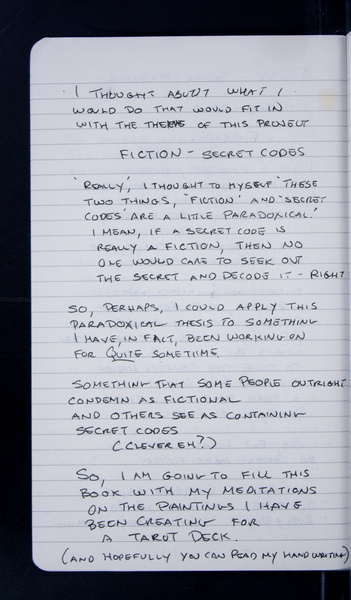 I THOUGHT ABOUT WHAT I
WOULD DO THAT WOULD FIT IN
WITH THE THEME OF THIS PROJECT
FICTION - SECRET CODES
'REALLY', I THOUGHT TO MYSELF "THESE
TWO THINGS, 'FICTION' AND 'SECRET
CODES' ARE A LITLE PARADOXICAL."
I MEAN, IF A SECRET CODE IS
REALLY A FICTION, THEN NO
ONE WOULD CARE TO SEEK OUT
THE SECRET AND DECODE IT - RIGHT
SO, PERHAPS, I COULD APPLY THIS
PARADOXICAL THESIS TO SOMETHING
I HAVE, IN FACT, BEEN WORKING ON
FOR QUITE SOMETIME.
SOMETHING THAT SOME PEOPLE OUTRIGHT
CONDEMN AS FICTIONAL
AND OTHERS SEE AS CONTAINING
SECRET CODES
(CLEVER EH?)
SO, I AM GOING TO FILL THIS
BOOK WITH MY MEDITATIONS
ON THE PAINTINGS I HAVE
BEEN CREATING FOR
A TAROT DECK.
(AND HOPEFULLY YOU CAN READ MY HANDWRITING)